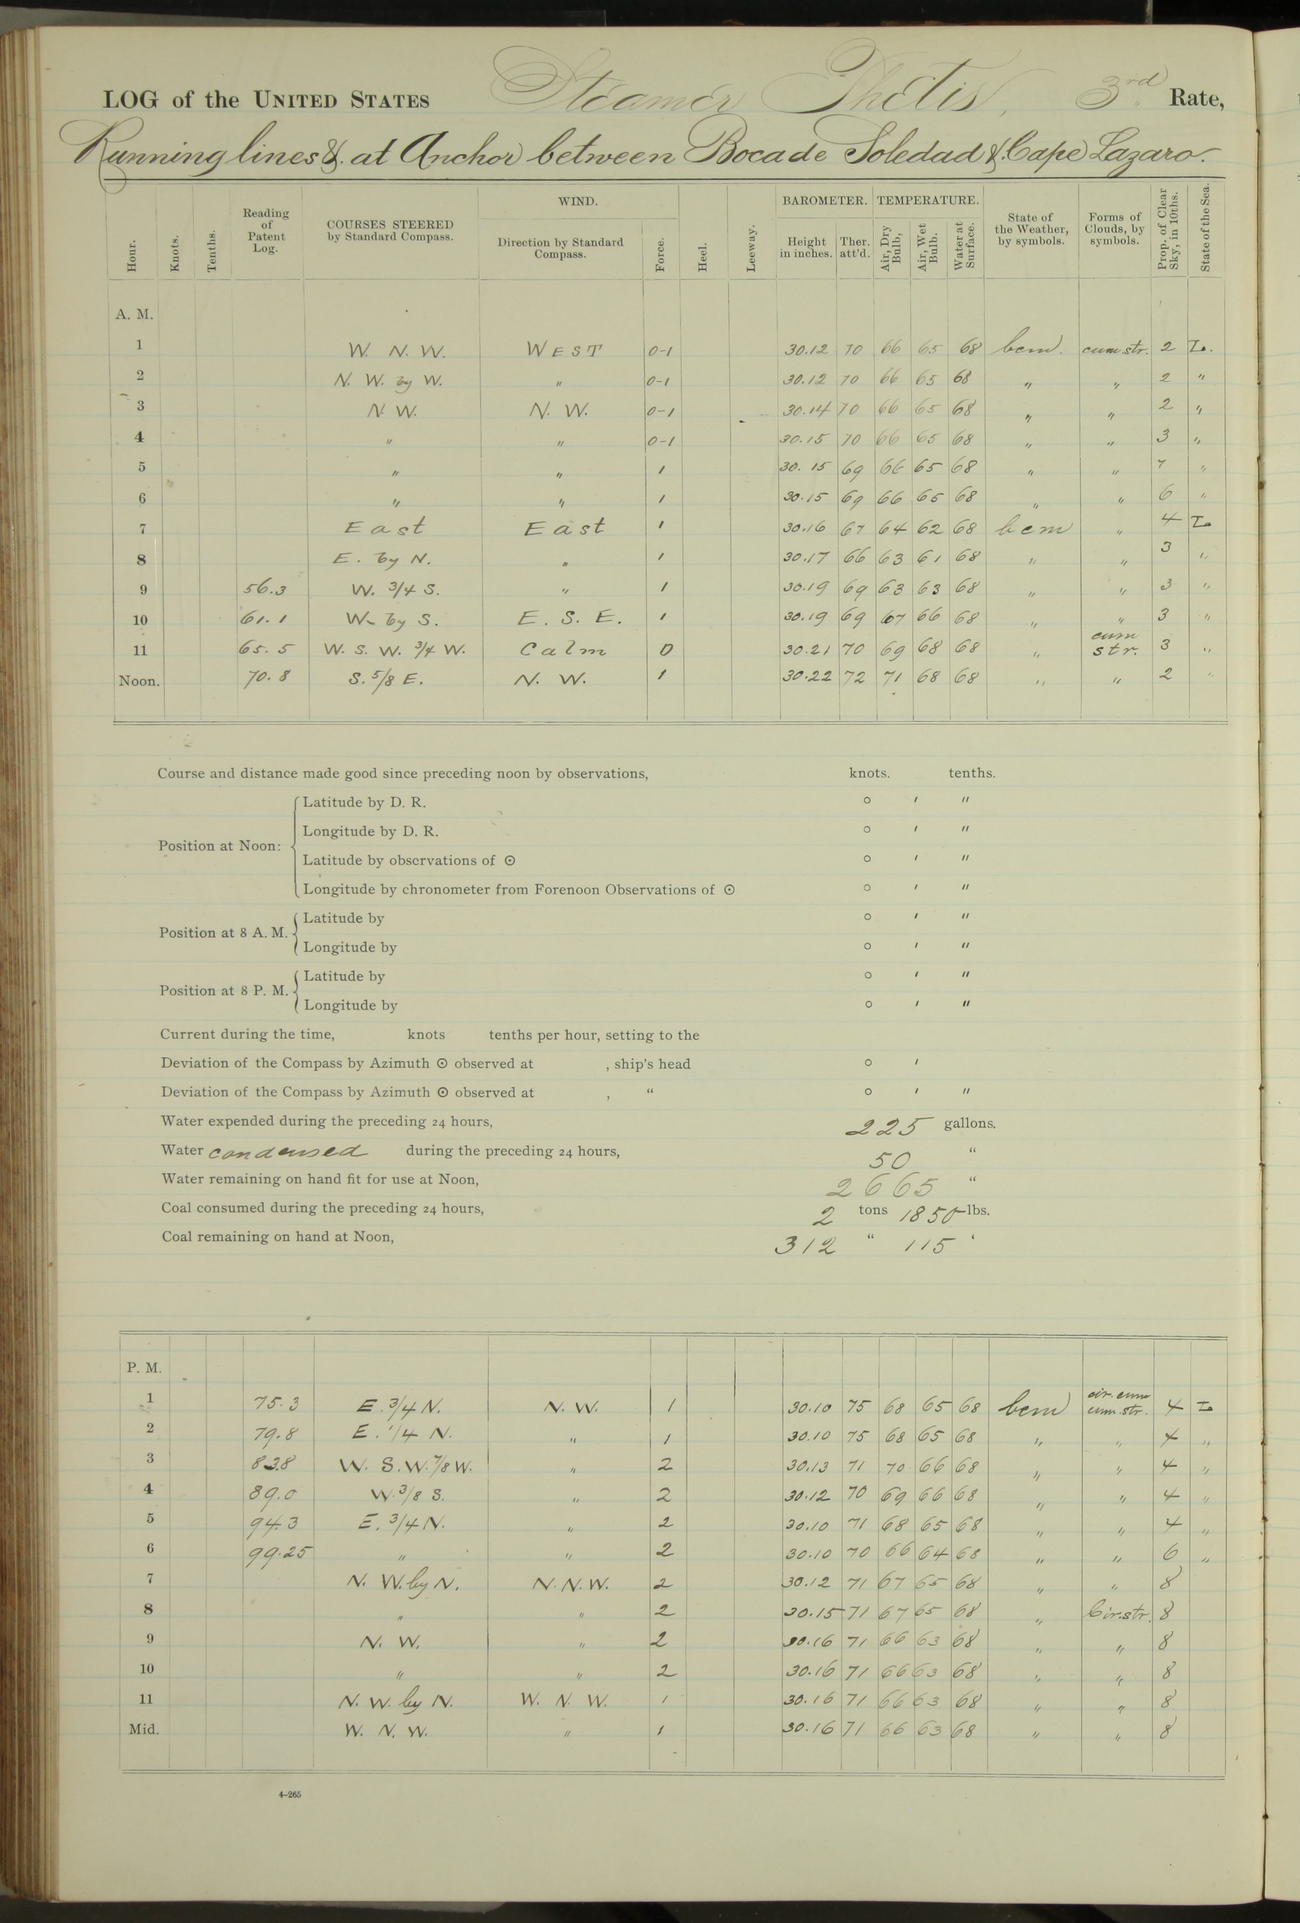 LOG of the UNITED STATES Steamer Thetis, 3rd Rate,
Running lines &. at Anchor between Boca de Soledad &. Cape Lazaro.
Hour. Knots. Tenths. Reading of Patent Log. COURSES STEERED by Standard Compass. WIND. Direction by Standard Compass. Force. Heel. Leeway. BAROMETER. Height in inches. Ther. att'd. TEMPERATURE. Air, Dry Bulb, Air, Wet Bulb. Water at Surface. State of the Weather, by symbols. Forms of Clouds, by symbols. Prop. of Clear Sky, in 10ths. State of the Sea.
A. M.
1 W. N. W. WEST 0-1 30.12 70 66 65 68 bcm. cum str. 2 L.
2 N. W. by W. " 0-1 30.12 70 66 65 68 " " 2 "
3 N. W. N. W. 0-1 30.14 70 66 65 68 " " 2 "
4 " " 0-1 30.15 70 66 65 68 " " 3 "
5 " " 1 30.15 69 66 65 68 " " 7 "
6 " " 1 30.15 69 66 65 68 " " 6 "
7 East East 1 30.16 67 64 62 68 bcm " 4 L
8 E. by N. " 1 30.17 66 63 61 68 " " 3 "
9 56.3 W. 3/4 S. " 1 30.19 69 63 63 68 " " 3 "
10 61.1 W. by S. E. S. E. 1 30.19 69 67 66 68 " " 3 "
11 65.5 W. S. W. 3/4 W. Calm 0 30.21 70 69 68 68 " cum str. 3 "
Noon. 70.8 S. 5/8 E. N. W. 1 30.22 72 71 68 68 " " 2 "
Course and distance made good since preceding noon by observations, knots. tenths.
Position at Noon:
Latitude by D. R. ° ′ ″
Longitude by D. R. ° ′ ″
Latitude by observations of ⊙ ° ′ ″
Longitude by chronometer from Forenoon Observations of ⊙ ° ′ ″
Position at 8 A. M.
Latitude by ° ′ ″
Longitude by ° ′ ″
Position at 8 P. M.
Latitude by ° ′ ″
Longitude by ° ′ ″
Current during the time, knots tenths per hour, setting to the
Deviation of the Compass by Azimuth ⊙ observed at , ship's head ° ′
Deviation of the Compass by Azimuth ⊙ observed at , " ° ′ ″
Water expended during the preceding 24 hours, 225 gallons.
Water condensed during the preceding 24 hours, 50 "
Water remaining on hand fit for use at Noon, 2665 "
Coal consumed during the preceding 24 hours, 2 tons 1850 lbs.
Coal remaining on hand at Noon, 312 " 115 "
P. M.
1 75.3 E. 3/4 N. N. W. 1 30.10 75 68 65 68 bcm cir. cum cum. str. 4 L
2 79.8 E. 1/4 N. " 1 30.10 75 68 65 68 " " 4 "
3 83.8 W. S. W. 7/8 W. " 2 30.13 71 70 66 68 " " 4 "
4 89.0 W. 3/8 S. " 2 30.12 70 69 66 68 " " 4 "
5 94.3 E. 3/4 N. " 2 30.10 71 68 65 68 " " 4 "
6 99.25 " " 2 30.10 70 66 64 68 " " 6 "
7 N. W. by N. N. N. W. 2 30.12 71 67 65 68 " " 8
8 " " 2 30.15 71 67 65 68 " Cir. str. 8
9 N. W. " 2 30.16 71 66 63 68 " " 8
10 " " 2 30.16 71 66 63 68 " " 8
11 N. W. by N. W. N. W. 1 30.16 71 66 63 68 " " 8
Mid. W. N. W. " 1 30.16 71 66 63 68 " " 8
4-265